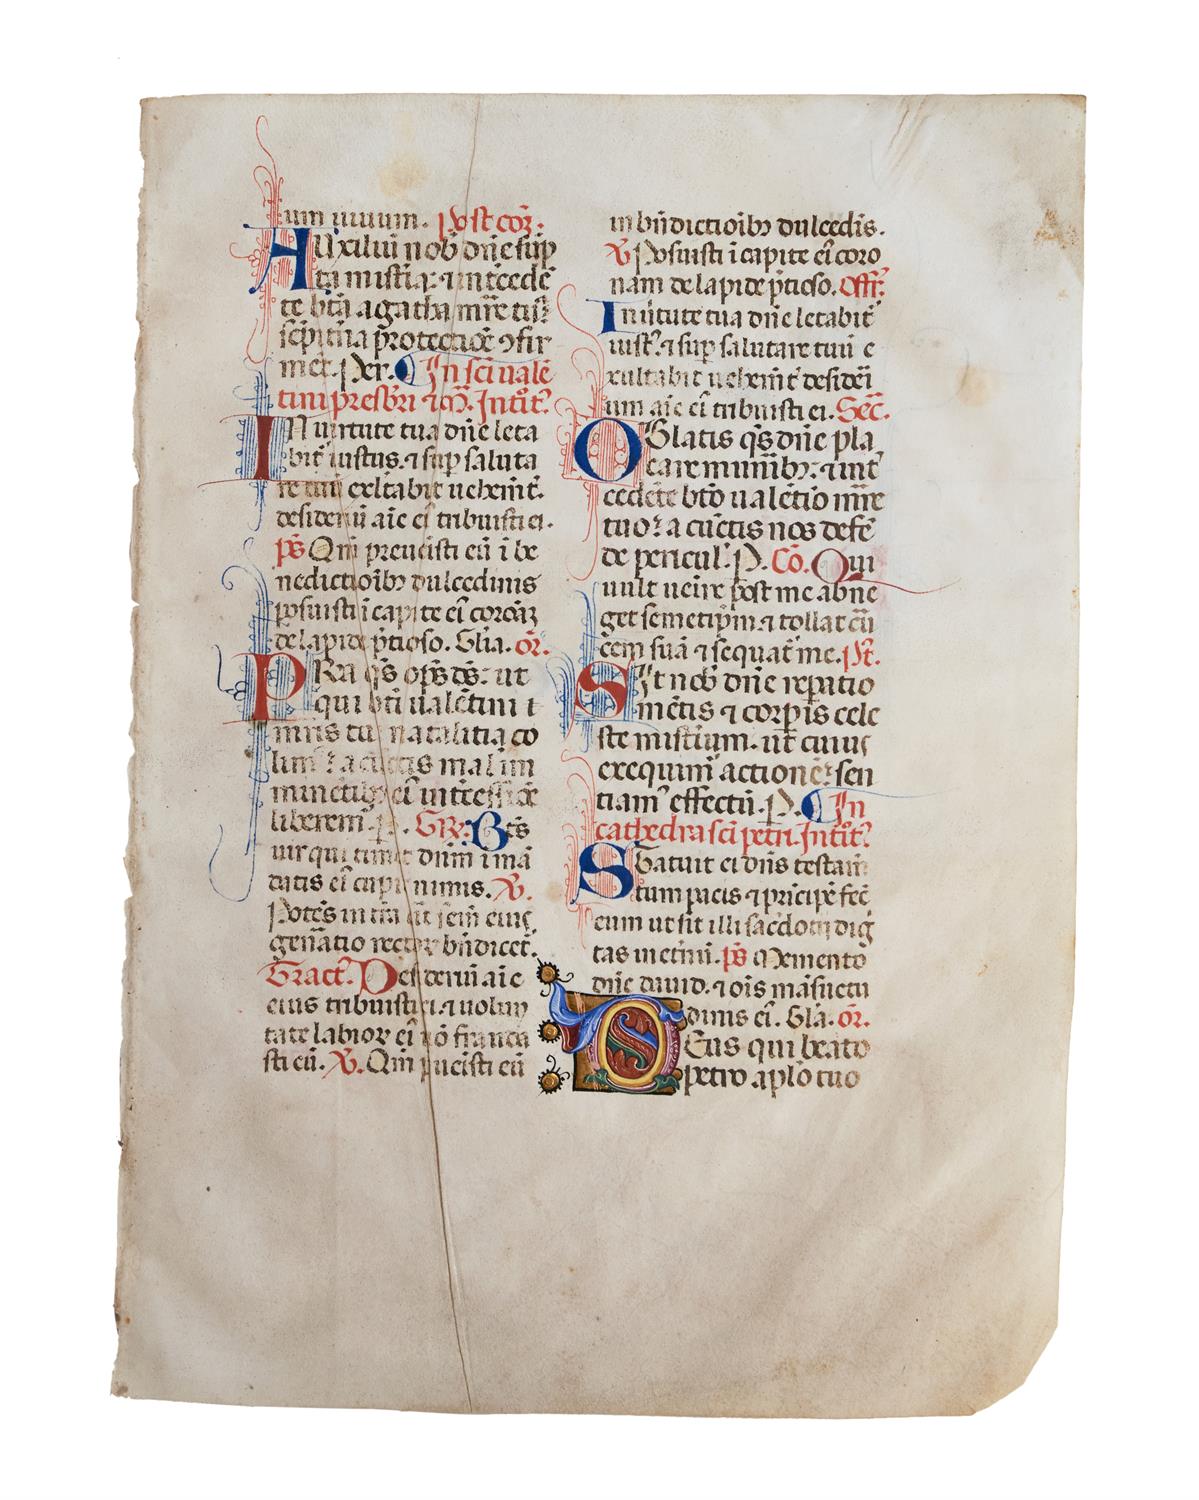 tum uiuum. Post cō.
AUxiliū nobˢ dn̄e sup̄
ta mist̄ia: ⁊ int̄cedē
te bt̄a agatha mr̄e tua
sēpit̄na protectiōe ꝯfir
met. Per. In sc̄i ualē
tini presbr̄i ⁊ m̄. Intōt.
IN uirtute tua dn̄e leta
bit̄ iustus. ⁊ sup̄ saluta
re tuū exltabit uehem̄t.
desideriū aīe eī tribuisti ei.
ps̄ Qm̄ preuēisti eū ī be
nedictiōibȝ dulcedinis
posuisti ī capite eī corōaȝ
de lapide p̄tioso. Gl̄ia. or̄.
PRa qs̄ op̄s ds̄: ut
qui bt̄i ualētini
mr̄is tui natalitia co
lim᷒ a cūctis malis im
minētibȝ eī int̄cessiōe
liberem᷒. P. GR̄. Bt̄s
uir qui timet dūm ī mā
datis eī cupit nimis. V̄.
Potēs in t̄ra erit sem̄ eius
gen̄atio rector̄ bn̄dicet̄.
Tract̄. Desideriū aīe
eius tribuisti ei. ⁊ uolun
tate labior̄ eī nō frauda
sti eū. V̄. Qm̄ p̄uēisti eū
in bn̄dictiōibȝ dulcedīs.
V̄ Posuisti ī capite eī coro
nam de lapide p̄tioso. Off̄.
In ūtute tua dn̄e letabit̄
iust᷒. ⁊ sup̄ salutare tuū e
xultabit uehem̄t̄ desideri
um aīe eī tribuisti ei. Sec̄.
OBlatis qs̄ dn̄e pla
care mun̄ibȝ: ⁊ int̄
cedēte bt̄o ualētio mr̄e
tuo: a cūctis nos defē
de pericul᷒. P. Cō. Qui
uult ueīre post me abne
get semetip̄m. ⁊ tollat cū
cem suā ⁊ sequat̄ me. P̄t.
SIt nobˢ dn̄e rep̄atio
mētis ⁊ corp̄is cele
ste mist̄ium. ut cuius
exequim᷒ actionē: sen
tiam᷒ effectū. P. In
cathedra sc̄i petri. Intōt.
STatuit ei dn̄s testam̄
tum pacis ⁊ prīcipē fec̄
eum ut sit illi sac̄dotij dig
tas in et̄nū. ps̄ Memento
dn̄e dauid. ⁊ oīs māsuetu
dinis eī. Gl̄a. or̄.
DEus qui beato
petro aplō tuo